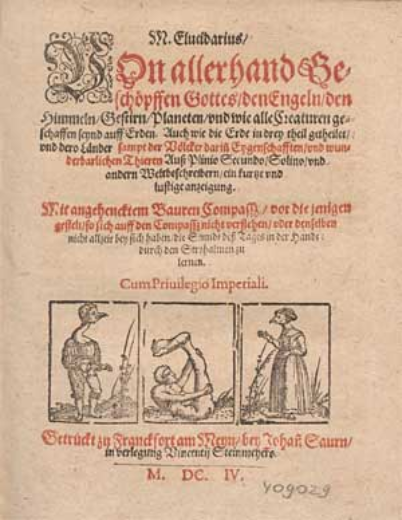 M. Elucidarius/
VOn allerhand Ge-
schöpffen Gottes/ den Engeln/ den
Himmeln/ Gestirn/ Planeten/ vnd wie alle Creaturen ge-
schaffen seynd auff Erden. Auch wie die Erde in drey theil getheilet/
vnd dero Länder sampt der Völcker dariñ Eygenschafften/ vnd wun-
derbarlichen Thieren Auß Plinio Secundo/ Solino/ vnd
andern Weltbeschreibern/ ein kurtze vnd
lustige anzeigung.
Mit angehencktem Bauren Compaß/ vor die jenigen
gestelt/ so sich auff den Compaß nicht verstehen/ oder denselben
nicht allzeit bey sich haben/ die Stundt deß Tages in der Handt
durch den Strohalmen zu
lernen.
Cum Priuilegio Imperiali.
Getruckt zu Franckfort am Meyn/ bey Johañ Saurn/
in verlegung Vincentij Steinmeyers.
M. DC. IV.
Yog029